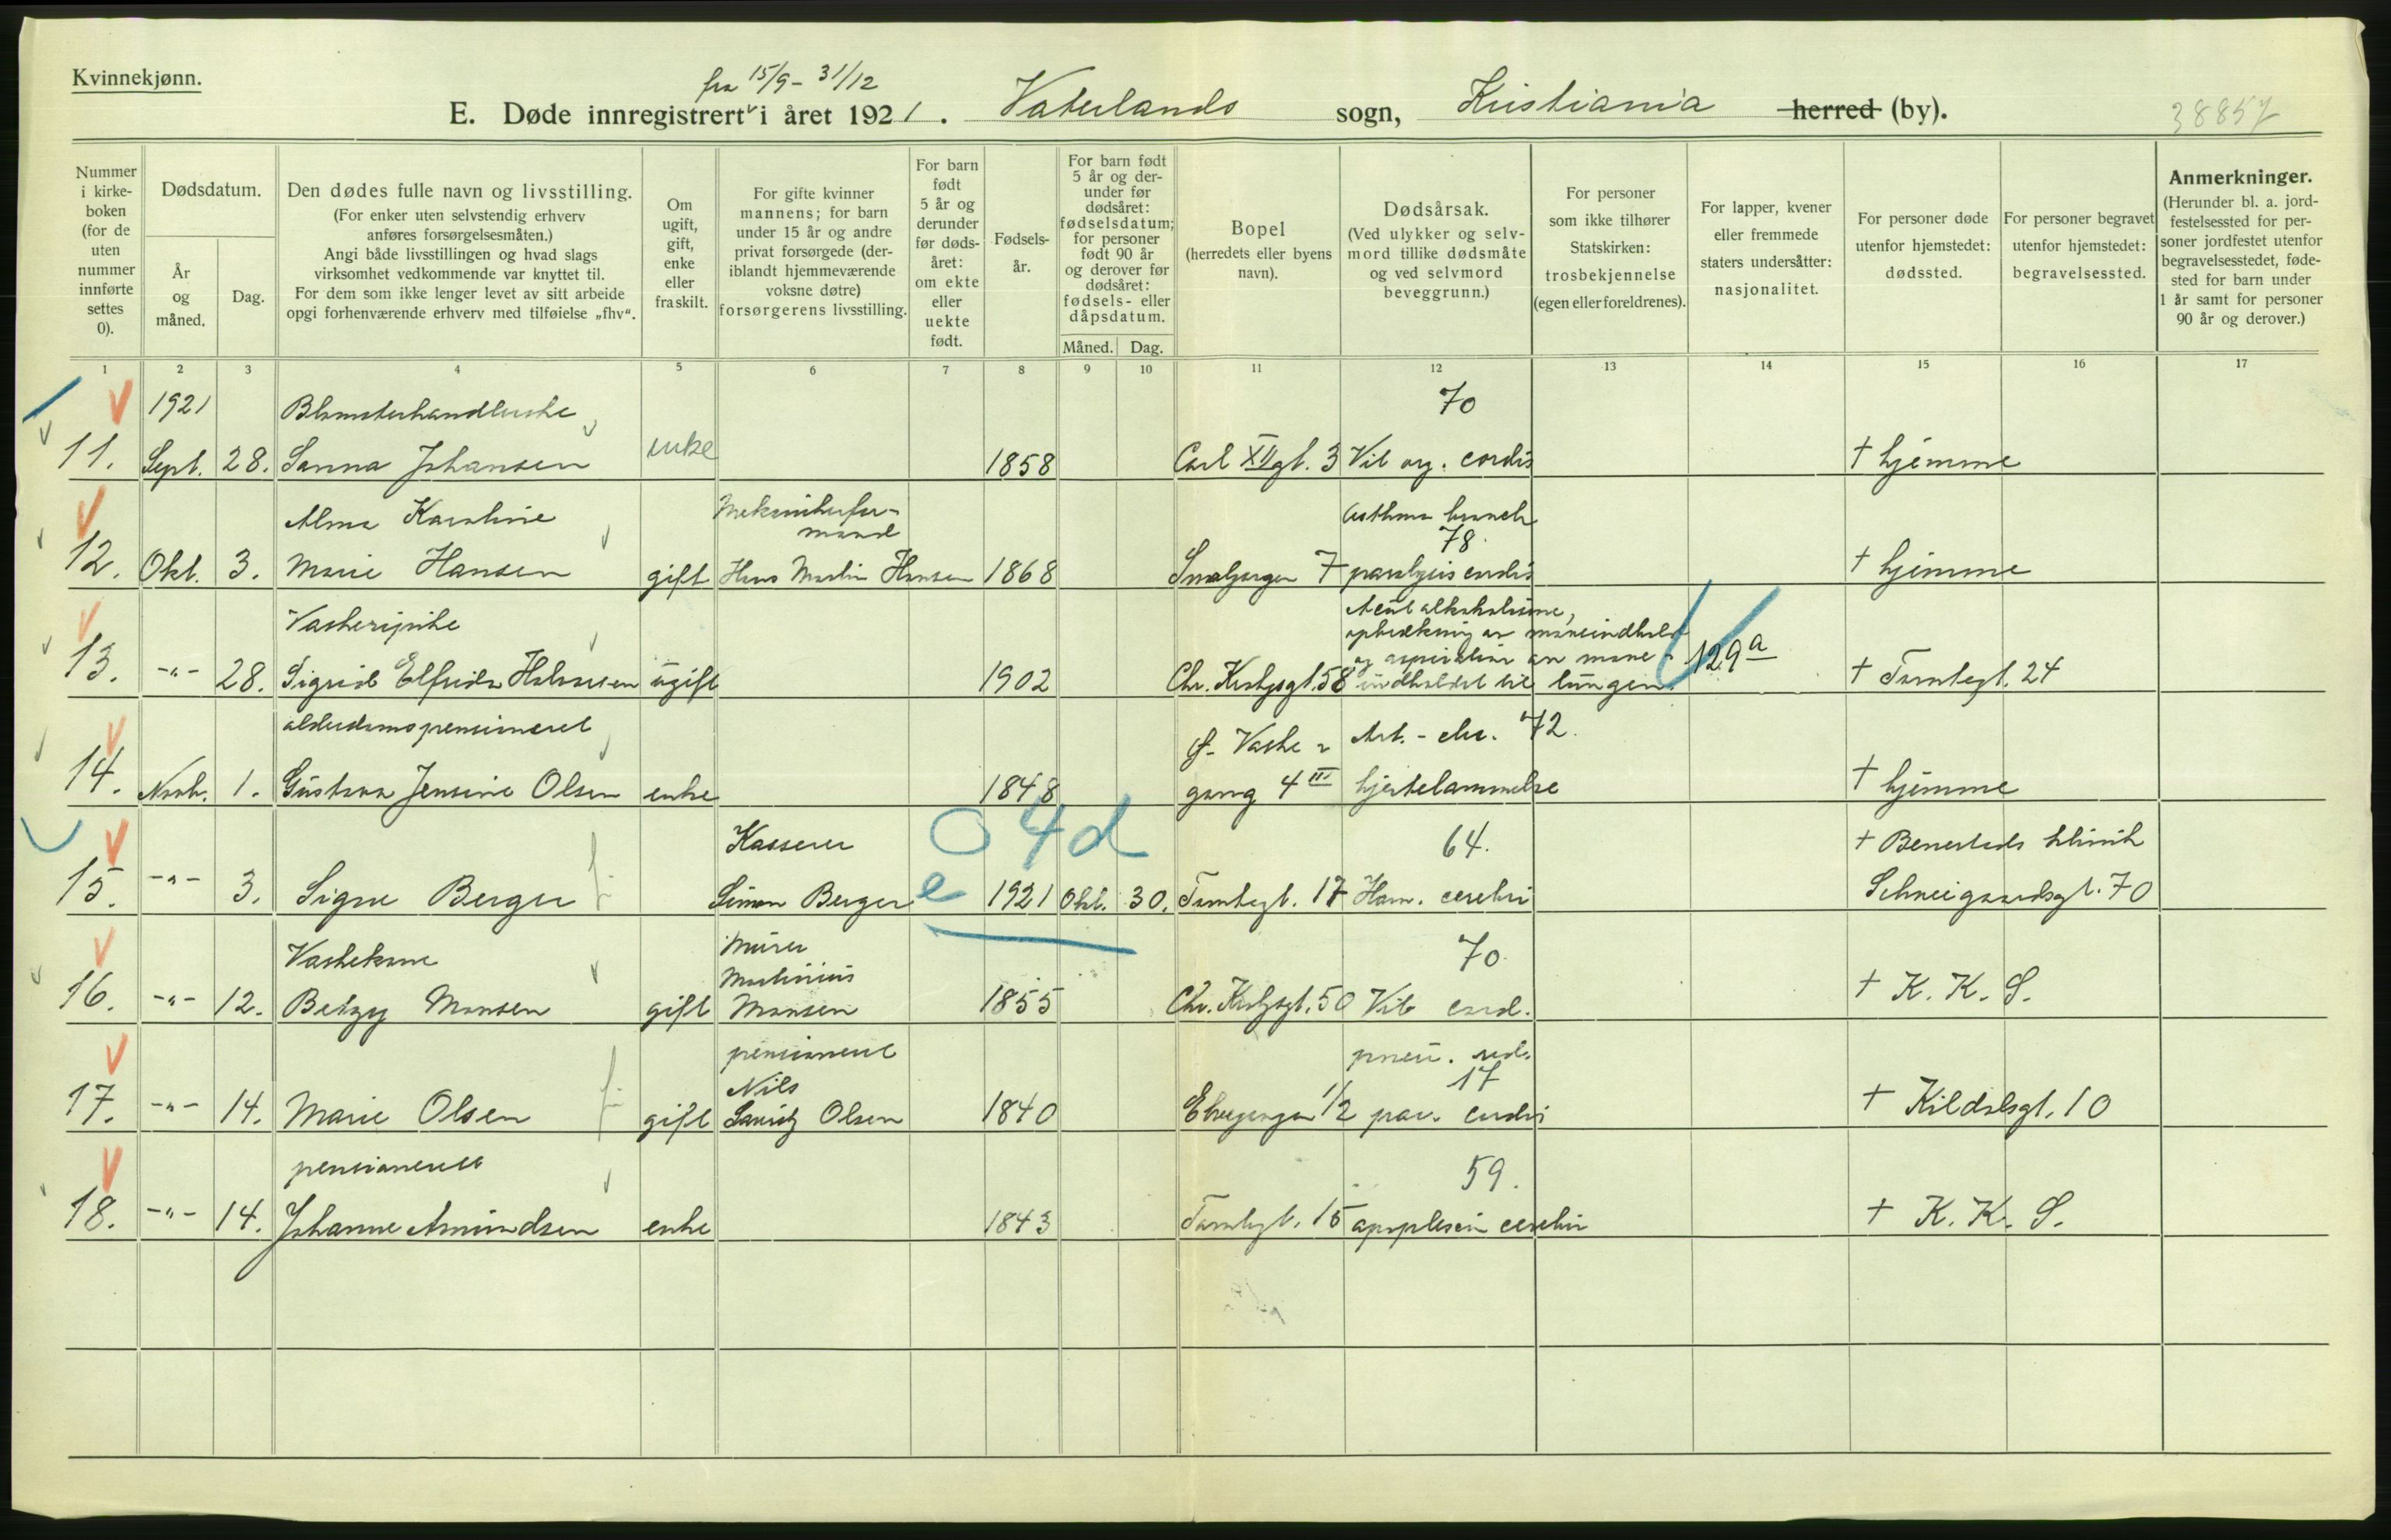 Kvinnekjønn.
fra 15/9 - 31/12
E. Døde innregistrert i året 1921. Vaterlands sogn, Kristiania herred (by).
38857
Nummer i kirkeboken (for de uten nummer innførte settes 0).
Dødsdatum.
År og måned.
Dag.
Den dødes fulle navn og livsstilling.
(For enker uten selvstendig erhverv anføres forsørgelsesmåten.)
Angi både livsstillingen og hvad slags virksomhet vedkommende var knyttet til.
For dem som ikke lenger levet av sitt arbeide opgi forhenværende erhverv med tilføielse „fhv“.
Om ugift, gift, enke eller fraskilt.
For gifte kvinner mannens; for barn under 15 år og andre privat forsørgede (deriblandt hjemmeværende voksne døtre) forsørgerens livsstilling.
For barn født 5 år og derunder før dødsåret: om ekte eller uekte født.
Fødselsår.
For barn født 5 år og derunder før dødsåret: fødselsdatum; for personer født 90 år og derover før dødsåret: fødsels- eller dåpsdatum.
Måned. Dag.
Bopel
(herredets eller byens navn).
Dødsårsak.
(Ved ulykker og selvmord tillike dødsmåte og ved selvmord beveggrunn.)
For personer som ikke tilhører Statskirken: trosbekjennelse (egen eller foreldrenes).
For lapper, kvener eller fremmede staters undersåtter: nasjonalitet.
For personer døde utenfor hjemstedet: dødssted.
For personer begravet utenfor hjemstedet: begravelsessted.
Anmerkninger.
(Herunder bl. a. jordfestelsessted for personer jordfestet utenfor begravelsesstedet, fødested for barn under 1 år samt for personer 90 år og derover.)
1 2 3 4 5 6 7 8 9 10 11 12 13 14 15 16 17
1921 Blomsterhandlerske 70
11. Sept. 28. Sanna Johansen enke 1858 Carl XII gt. 3 Vit org. cordis † hjemme
Alma Karoline formand Asthma bronch 78.
12. Okt. 3. Marie Hansen gift Hans Martin Hansen 1868 Smalgangen 7 paralysis cordis † hjemme
Vaskeripike Acut alkoholisme,
opbrækning av maveindhold
13. -"- 28. Sigrid Elfrida Halvorsen ugift 1902 Chr. Krohgsgt. 58 og aspiration av maveindholdet til lungen. 129a † Tomtegt. 24
alderdomspensioneret Art. - chr. 72.
14. Novb. 1. Gustava Jensine Olsen enke 1848 gang 4 III hjertelammelse † hjemme
Kasserer 04d 64. † Benestads klinik
15. -"- 3. Signe Berger Simon Berger e 1921 Okt. 30. Tomtegt. 17 Hæm. cerebri Schweigaardsgt. 70
Vaskekone Murer Martinius 70
16. -"- 12. Betzy Monsen gift Monsen 1855 Chr. Krohgsgt. 50 Vit cord. † K. K. S.
pensioneret Nils pneu. 17
17. -"- 14. Marie Olsen gift Lauritz Olsen 1840 Elvegangen 1/2 par. cordis † Kildalsgt. 10
pensioneret 59.
18. -"- 14. Johanne Amundsen enke 1843 Tomtegt. 15 apoplexia cerebri † K. K. S.